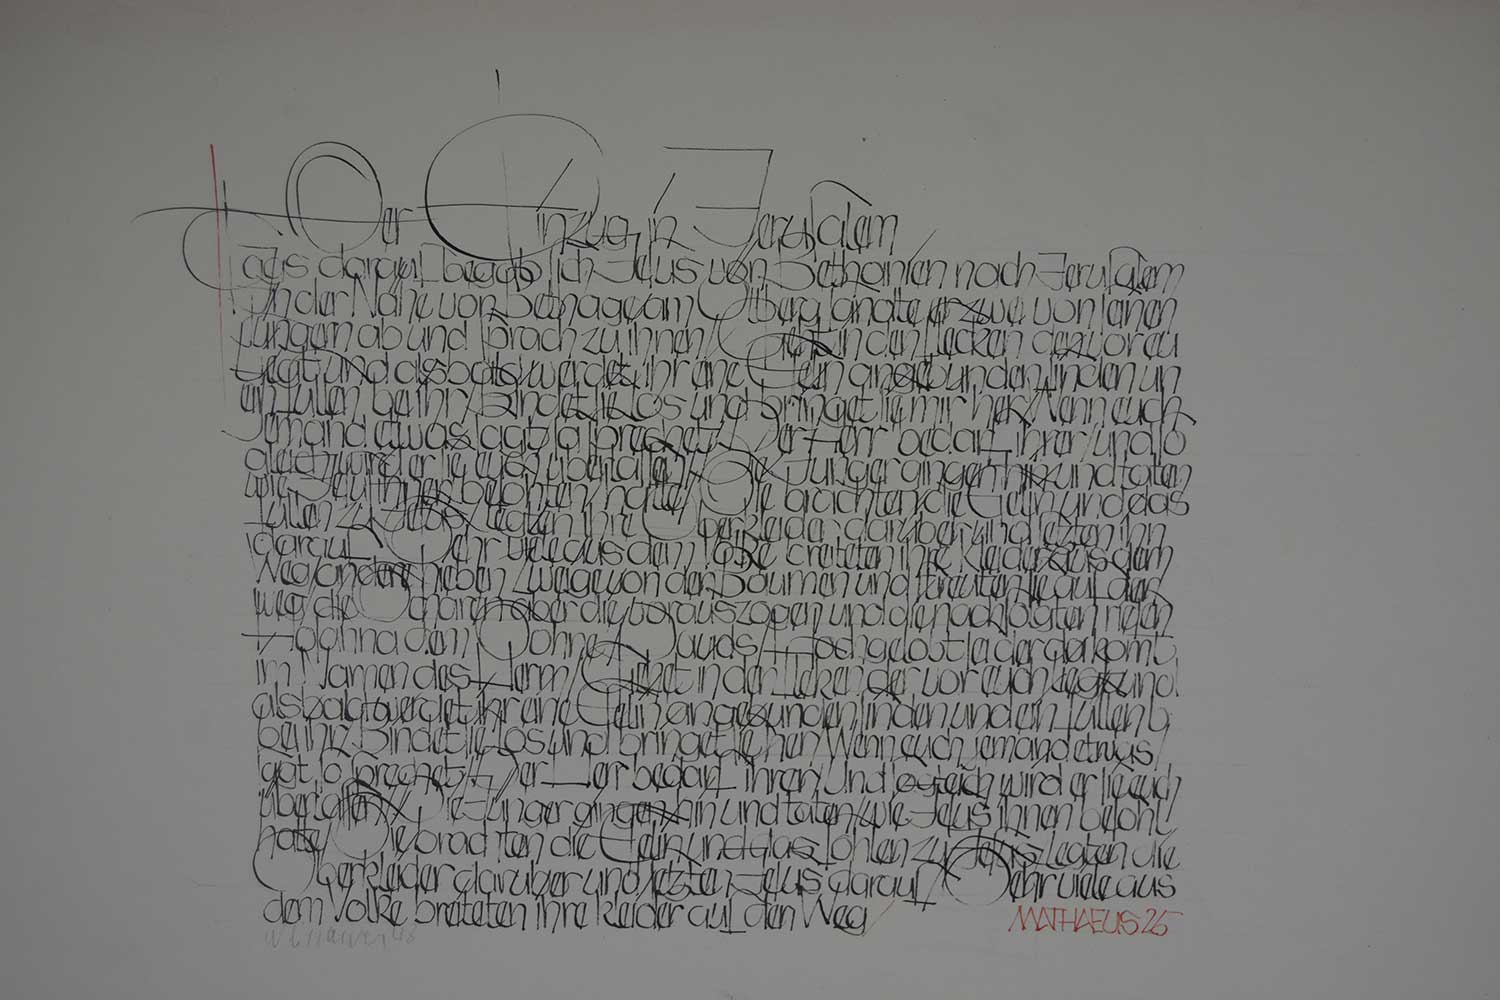 Der Einzug in Jerusalem
Tags darauf begab sich Jesus von Bethanien nach Jerusalem
In der Nähe von Bethage am Ölberg sandte er zwei von seinen
Jüngern ab und sprach zu ihnen / Gehet in den Flecken der vor eu
liegt und alsbald werdet ihr eine Eselin angebunden finden un
ein Füllen bei ihr / Bindet sie los und bringet sie mir her / Wenn euch
Jemand etwas sagt so sprechet / Der Herr bedarf ihrer / und so
gleich wird er sie euch überlassen / Die Jünger gingen hin und taten
wie Jesu ihnen befohlen hatte / Sie brachten die Eselin und das
Füllen zu Jesus legten ihre Überkleider darüber und setzten ihn
darauf Sehr viele aus dem Volke breiteten ihre Kleider aus dem
Weg / andere hieben Zweige von den Bäumen und streuten sie auf den
Weg / die Scharen aber die vorauszogen und die nachfolgten riefen
Hosanna dem Sohne Davids / Hochgelobt sei der der komt
im Namen des Herrn / Gehet in den Fleken der vor euch liegt und
alsbald werdet ihr eine Eselin angebunden finden und ein Füllen b
bei ihr Bindet sie los und bringet sie her Wenn euch jemand etwas /
sagt so sprechet / Der Herr bedarf ihrer / Und sogleich wird er sie euch
überlassen / Die Jünger gingen hin und taten / wie Jesus ihnen befohl
hatte / Sie brachten die Eselin und das Fohlen zu Jesus legten die
Überkleider darüber und setzten Jesus darauf / Sehr viele aus
dem Volke breiteten ihre Kleider auf den Weg
MATHAEUS 25